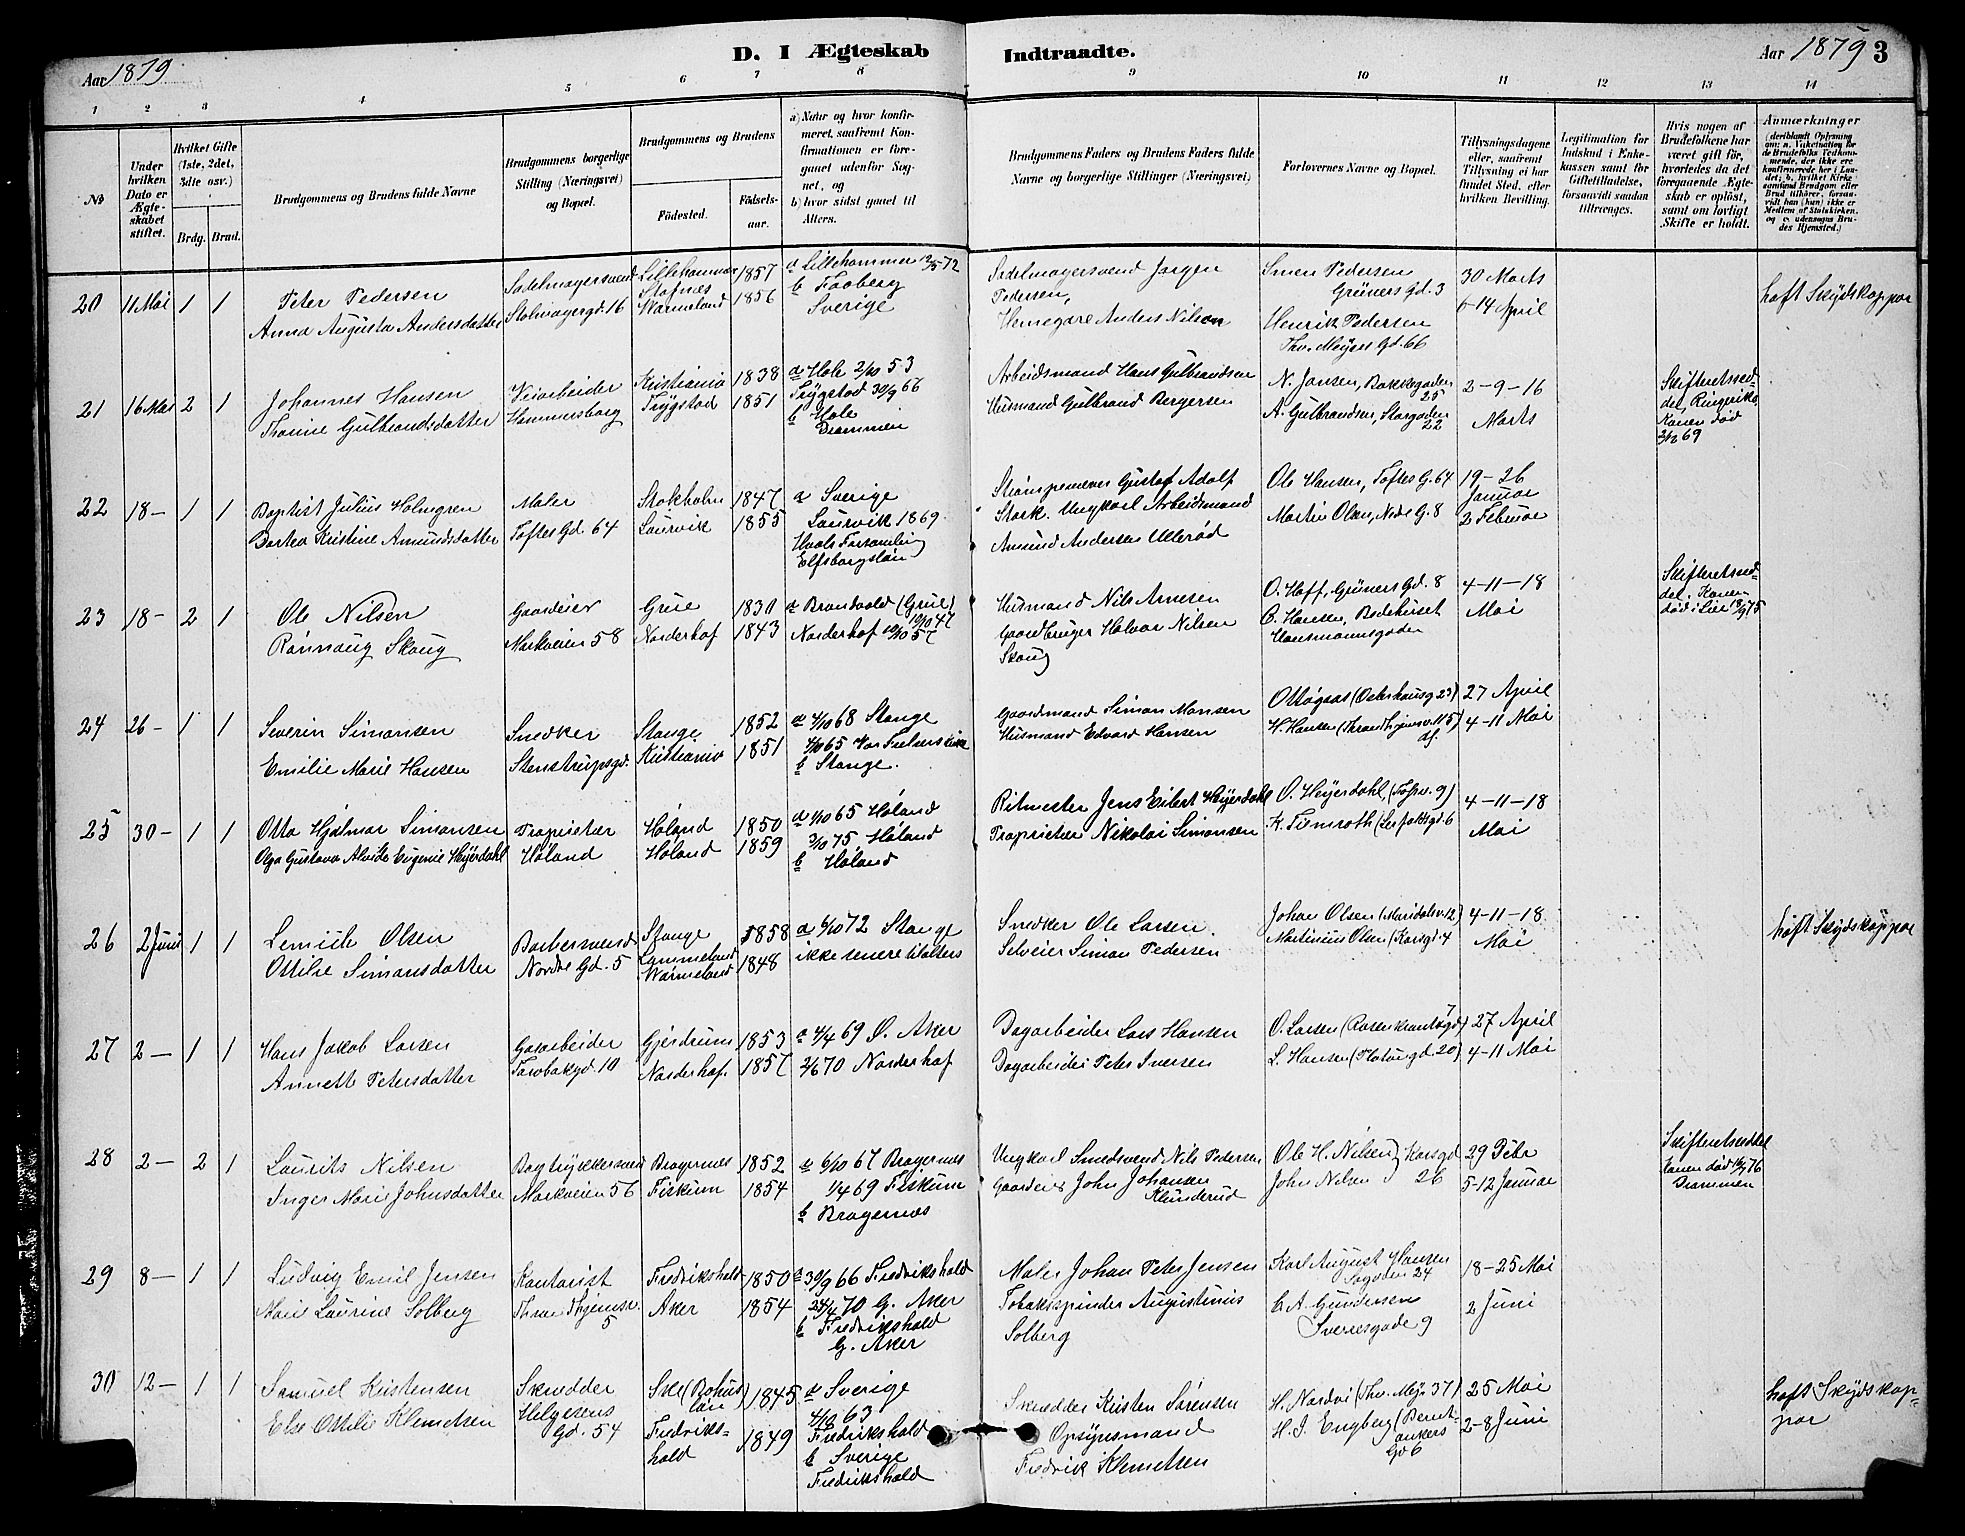 D. I Ægteskab Indtraadte.
Aar 1879.
Aar 1879 3
1 2 3 4 5 6 7 8 9 10 11 12 13 14
No
Under hvilken Dato er Ægteskabet stiftet.
Hvilket Gifte (1ste, 2det, 3dte osv.)
Brdg. Brud.
Brudgommens og Brudens fulde Navne
Brudgommens borgerlige Stilling (Næringsvei) og Bopæl.
Brudgommens og Brudens
Fødested. Fødselsaar.
a) Naar og hvor konfirmeret, saafremt Konfirmationen er foregaaet udenfor Sognet, og
b) hvor sidst gaaet til Alters.
Brudgommens Faders og Brudens Faders fulde Navne og borgerlige Stillinger (Næringsvei)
Forlovernes Navne og Bopæl.
Tillysningsdagene eller, saafremt Tillysning ei har fundet Sted, efter hvilken Bevilling.
Legitimation for Indskud i Enkekassen samt for Giftetilladelse, forsaavidt saadan tiltrænges.
Hvis nogen af Brudefolkene har været gift før, hvorledes da det foregaaende Ægteskab er opløst, samt om lovligt Skifte er holdt.
Anmærkninger
20 11 Mai 1 1
Peter Pedersen
Anna Augusta Andersdatter
Sadelmagersvend
Stolmagergd. 16
Lillehammer 1857
Stafnes Wärmeland 1856
a Lillehammer 12/5 72
b Faaberg
Sverige
Sadelmagersvend Jørgen
Pedersen,
Hemegare Anders Nilson
Simen Pedersen
Grüners Gd. 3
Henrik Pedersen
Thv. Meyers Gd. 66
30 Marts
6-14 April
haft Skydskopper
21 16 Mai 2 1
Johannes Hansen
Thorine Gulbrandsdatter
Veiarbeider
Hammersborg
Kristiania 1838
Trygstad 1851
a Hole 2/10 53
Trygstad 30/9 66
b Hole
Drammen
Arbeidsmand Hans Gulbrandsen
Husmand Gulbrand Bergersen
N. Jansen, Bakkegaden 25
A. Gulbrandsen, Storgaden 22
2-9-16
Marts
Skifteretssed-
del, Ringerike,
Konen død
2/12 69
22 18- 1 1
Baptist Julius Holmgren
Dortea Kristine Amundsdatter
Maler
Toftes Gd. 64
Stokholm 1847
Laurvik 1855
a Sverige
Laurvik 1869.
Hvals Forsamling
Elfsborgslän
Strømpevæver Gustaf Adolf
Stark. Ungkarl Arbeidsmand
Amund Andersen Ullerød
Ole Hansen, Toftes G. 64
Martin Olsen, Nedre G. 8
19-26
Januar
2 Februar
23 18- 2 1
Ole Nilsen
Rønnaug Skaug
Gaardeier
Markveien 58
Grue 1830
Norderhof 1843
a Brandvold (Grue) 10/10 47
Norderhof 10/10 57
Husmand Nils Arnesen
Gaardbruger Halvor Nilsen
Skaug
O. Hoff, Grüners Gd. 8
C. Hansen, Bedehuset
Hausmannsgaden
4-11-18
Mai
Skifteretssed-
del. Konen
død i Lier 19/1 75
24 26- 1 1
Severin Simonsen
Emilie Marie Hansen
Snedker
Stenstrupsgd.
Stange 1852
Kristiania 1851
a 4/10 68 Stange
4/10 65 Vor Frelsers Kirke
b Stange.
Gaardmand Simon Monsen
Husmand Edvard Hansen
Ottøgaas (Osterhausg 23)
H. Hansen (Thrandhjemsv. 115)
27 April
4-11 Mai
25 30- 1 1
Otto Hjalmar Simonsen
Olga Gustava Alvide Eugenie Heyerdahl
Proprietær
Høland
Høland 1850
Høland 1859
a 1/10 65 Høland
3/10 75 Høland
b Høland
Ritmester Jens Eilert Heyerdahl
Proprietær Nikolai Simonsen
O. Heyerdahl,
K. Fiemroth
4-11-18
Mai
26 2 Juni 1 1
Lemich Olsen
Ottilie Simonsdatter
Barbersvend
Nordre Gd. 5
Stange 1858
Lommeland Wärmeland 1848
a 6/10 72 Stange
ikke senere til alters
Snedker Ole Larsen.
Selveier Simon Pedersen
Johan Olsen (Maridalsv. 12)
Martinius Olsen (Korsgd. 4
4-11-18
Mai
haft Skydskopper
27 2- 1 1
Hans Jakob Larsen
Annette Petersdatter
Gasarbeider
Gjerdrum 1853
Norderhof. 1857
a 4/4 69 Ø. Aker
2/6 70 Norderhof
Dagarbeider Lars Hansen
Dagarbeider Peter Iversen
O. Larsen (Rosenkrantzgd 7)
L. Hansen (Platougd. 20)
27 April
4-11 Mai
28 2- 2 1
Laurits Nilsen
Inger Marie Johnsdatter
Bogtrykkersvend
Markveien 56
Bragernes 1852
Fiskum 1854
a 6/10 67 Bragernes
1/4 69 Fiskum
b Bragernes
Ungkarl Smedsvend Nils Pedersen
Gaardeier John Johansen
Klunderud
Ole H. Nilsen } Korsgd.
John Nilsen } 26
29 Debr
5-12 Januar
Skifteretsseddel
konen død 16/1 76
Drammen
29 8- 1 1
Ludvig Emil Jensen
Marie Laurine Solberg
Kontorist
Thrandhjemsv. 5
Fredrikshald 1850
Aker 1854
a 30/9 66 Fredrikshald
24/4 70 G. Aker
b Fredrikshald
G. Aker
Maler Johan Peter Jensen
Tobaksspinder Augustinus
Solberg
Karl August Hansen
Sagaden 24
C. A. Gundersen
Sverresgade 9
18-25 Mai
2 Juni
30 12- 1 1
Samuel Kristensen
Else Ottilie Klemetsen
Skrædder
Helgesens
Gd. 54
Skee (Bohus
län) 1845
Fredriks=
hald 1849
a Sverige
4/10 63
Fredrikshald
b Sverige
Fredrikshald
Skrædder Kristen Sørensen
Opsynsmand
Fredrik Klemetsen
H. Nordvi (Thv. Meyers 37)
H. J. Engberg (Bernt
Ankers
Gd 6
25 Mai
2-8 Juni
haft Skydskop-
per